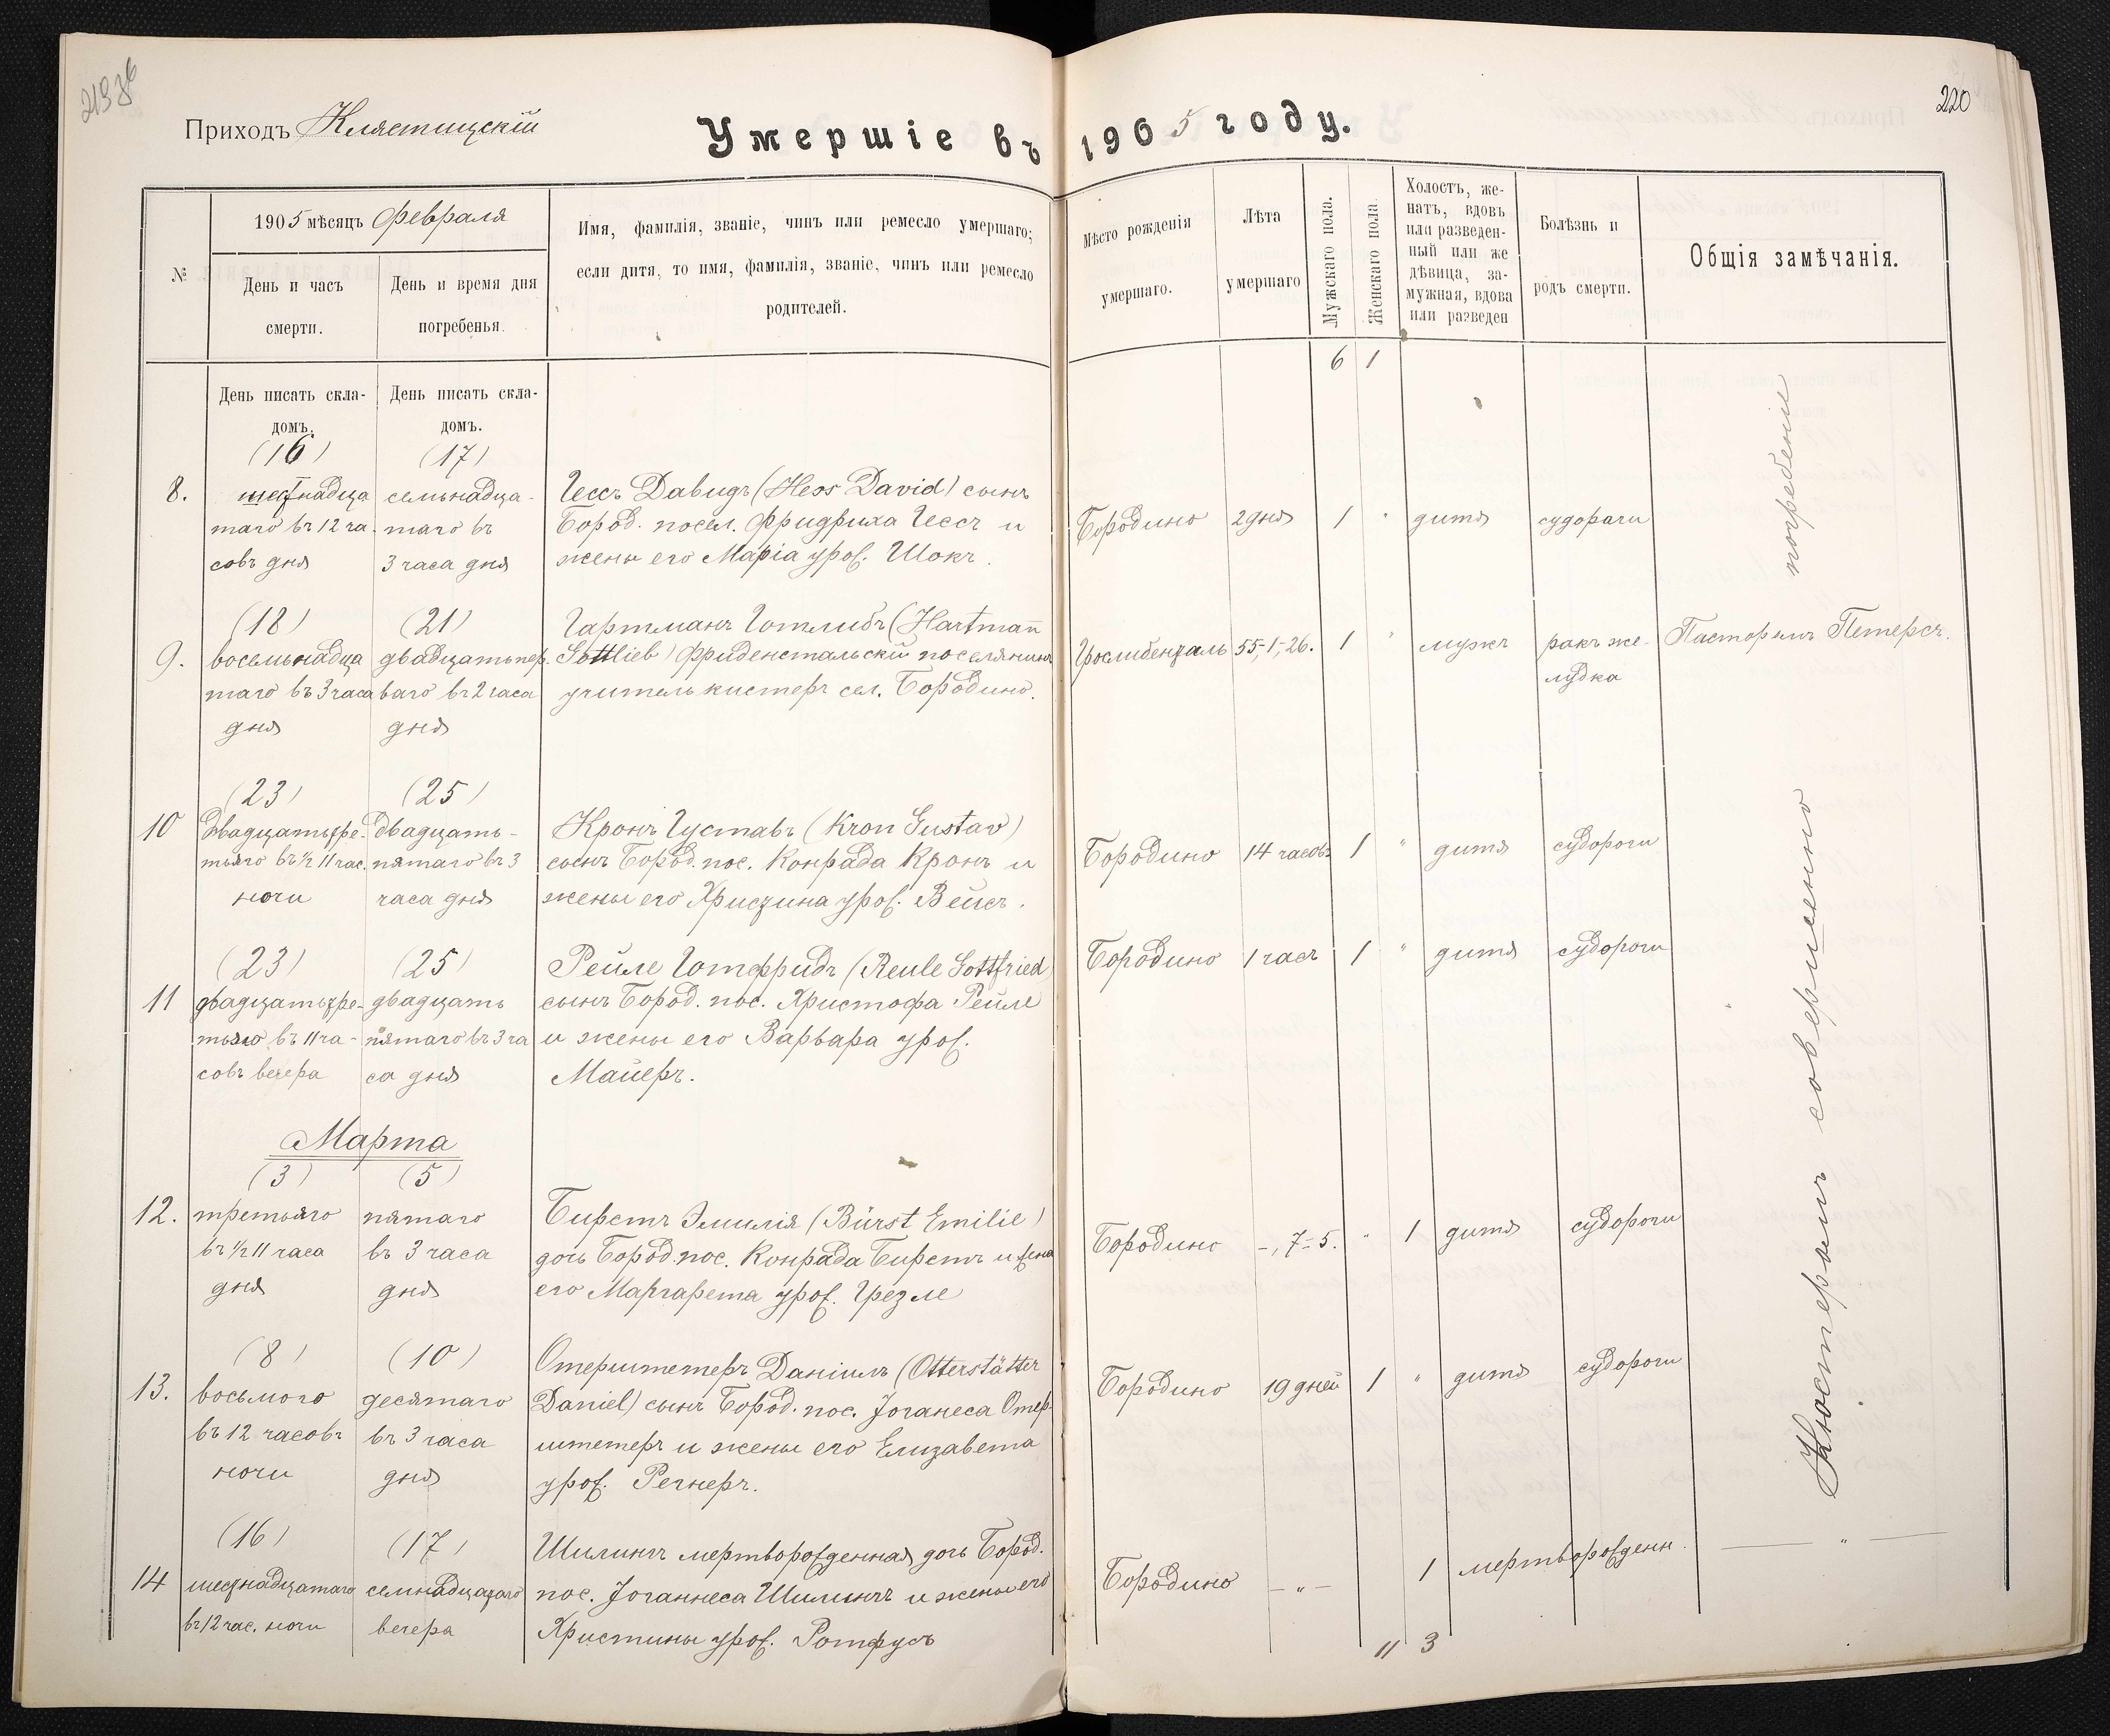 Приходъ Клястицскій
Умершіе въ 1905 году.
220
№
1905 мѣсяцъ февраля
День и часъ смерти.
День и время дня погребенья.
Имя, фамилія, званіе, чинъ или ремесло умершаго;
если дитя, то имя, фамилія, званіе, чинъ или ремесло
родителей.
Мѣсто рожденія
умершаго.
Лѣта
умершаго
Мужскаго пола.
Женскаго пола.
Холостъ, же-
натъ, вдовъ
или разведен-
ный или же
дѣвица, за-
мужная, вдова
или разведен
Болѣзнь и
родъ смерти.
Общія замѣчанія.
6 1
День писать скла-
домъ.
День писать скла-
домъ.
8.
(16)
шестнадца
таго въ 12 ча-
совъ дня
(17)
семьнадца-
таго въ
3 часа дня
Гессъ Давидъ (Hess David) сынъ
Бород. посел. Фридриха Гессъ и
жены его Марія урож. Шокъ.
Бородино 2 дня 1 " дитя судораги
9.
(18)
восемьнадца
таго въ 3 часа
дня
(21)
двадцатьпер-
ваго въ 2 часа
дня
Гартманъ Готлибъ (Hartmañ
Gottlieb) Фриденстальскій поселянинъ
учитель кистеръ сел. Бородино.
Грослибенталь 55,-1,-26. 1 " мужъ ракъ же-
лудка
Пасторомъ Петерсъ.
10
(23)
Двадцатьтре-
тьяго въ ½ 11 час.
ночи
(25)
двадцать-
пятаго въ 3
часа дня
Кронъ Густавъ (Kron Gustav)
сынъ Бород. пос. Конрада Кронъ и
жены его Христина урож. Вейсъ.
Бородино 14 часовъ 1 " дитя судороги
11
(23)
двадцатьтре-
тьяго въ 11 ча-
совъ вечера
(25)
двадцать
пятаго въ 3 ча
са дня
Рейле Готфридъ (Reule Gottfried)
сынъ Бород. пос. Христофа Рейле
и жены его Варвара урож.
Майеръ.
Бородино 1 часъ 1 " дитя судороги
Марта
12.
(3)
третьяго
въ ½ 11 часа
дня
(5)
пятаго
въ 3 часа
дня
Бирстъ Эмилія (Bürst Emilie)
дочь Бород. пос. Конрада Бирстъ и жена
его Маргарета урож. Грезле
Бородино -, 7-5. " 1 дитя судороги
13.
(8)
восьмого
въ 12 часовъ
ночи
(10)
десятаго
въ 3 часа
дня
Отерштетеръ Даніилъ (Otterstätter
Daniel) сынъ Бород. пос. Іоганеса Отер-
штетеръ и жены его Елизавета
урож. Регнеръ.
Бородино 19 дней 1 " дитя судороги
14
(16)
шестнадцатаго
въ 12 час. ночи
(17)
семнадцатаго
вечера
Шилингъ мертворожденная дочь Бород.
пос. Іоганнеса Шилингъ и жены его
Христины урож. Ротфусъ
Бородино -"- 1 мертворожденн. — " —
11 3
Кюстеромъ совершенно погребеніе